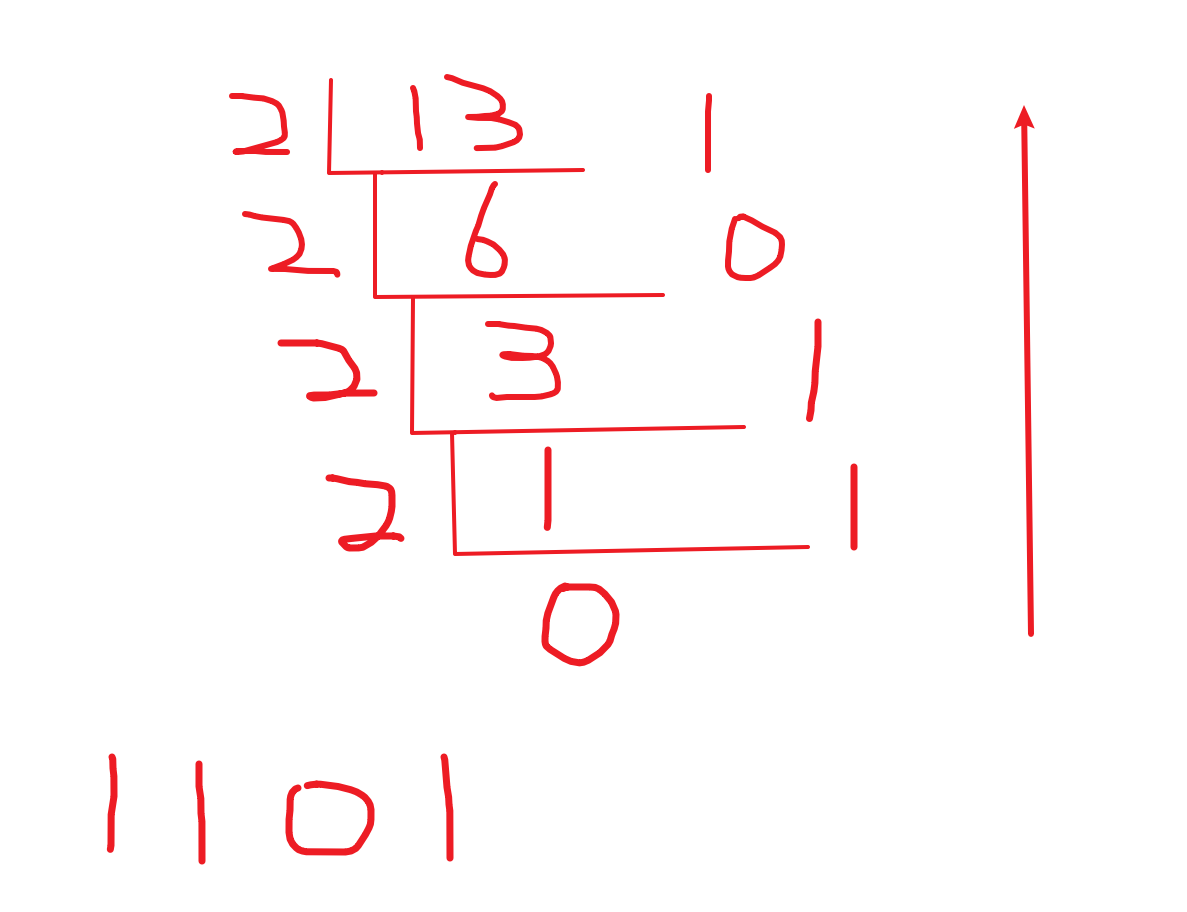 2 13 1
2 6 0
2 3 1
2 1 1
0
1 1 0 1